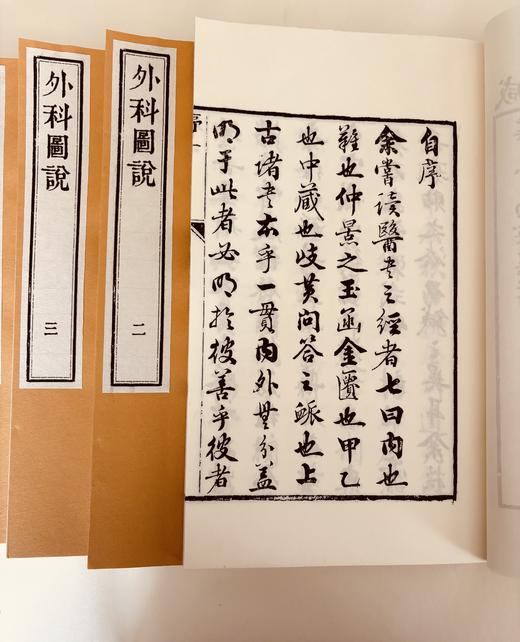 自序
余嘗讀醫書之經者七曰內也
難也仲景之玉函金匱也甲乙
也中蔵也歧黃問答之脈也上
古諸書本乎一貫內外無分蓋
明于此者必明於彼善乎彼者
序一
外科圖說
二
外科圖說
三